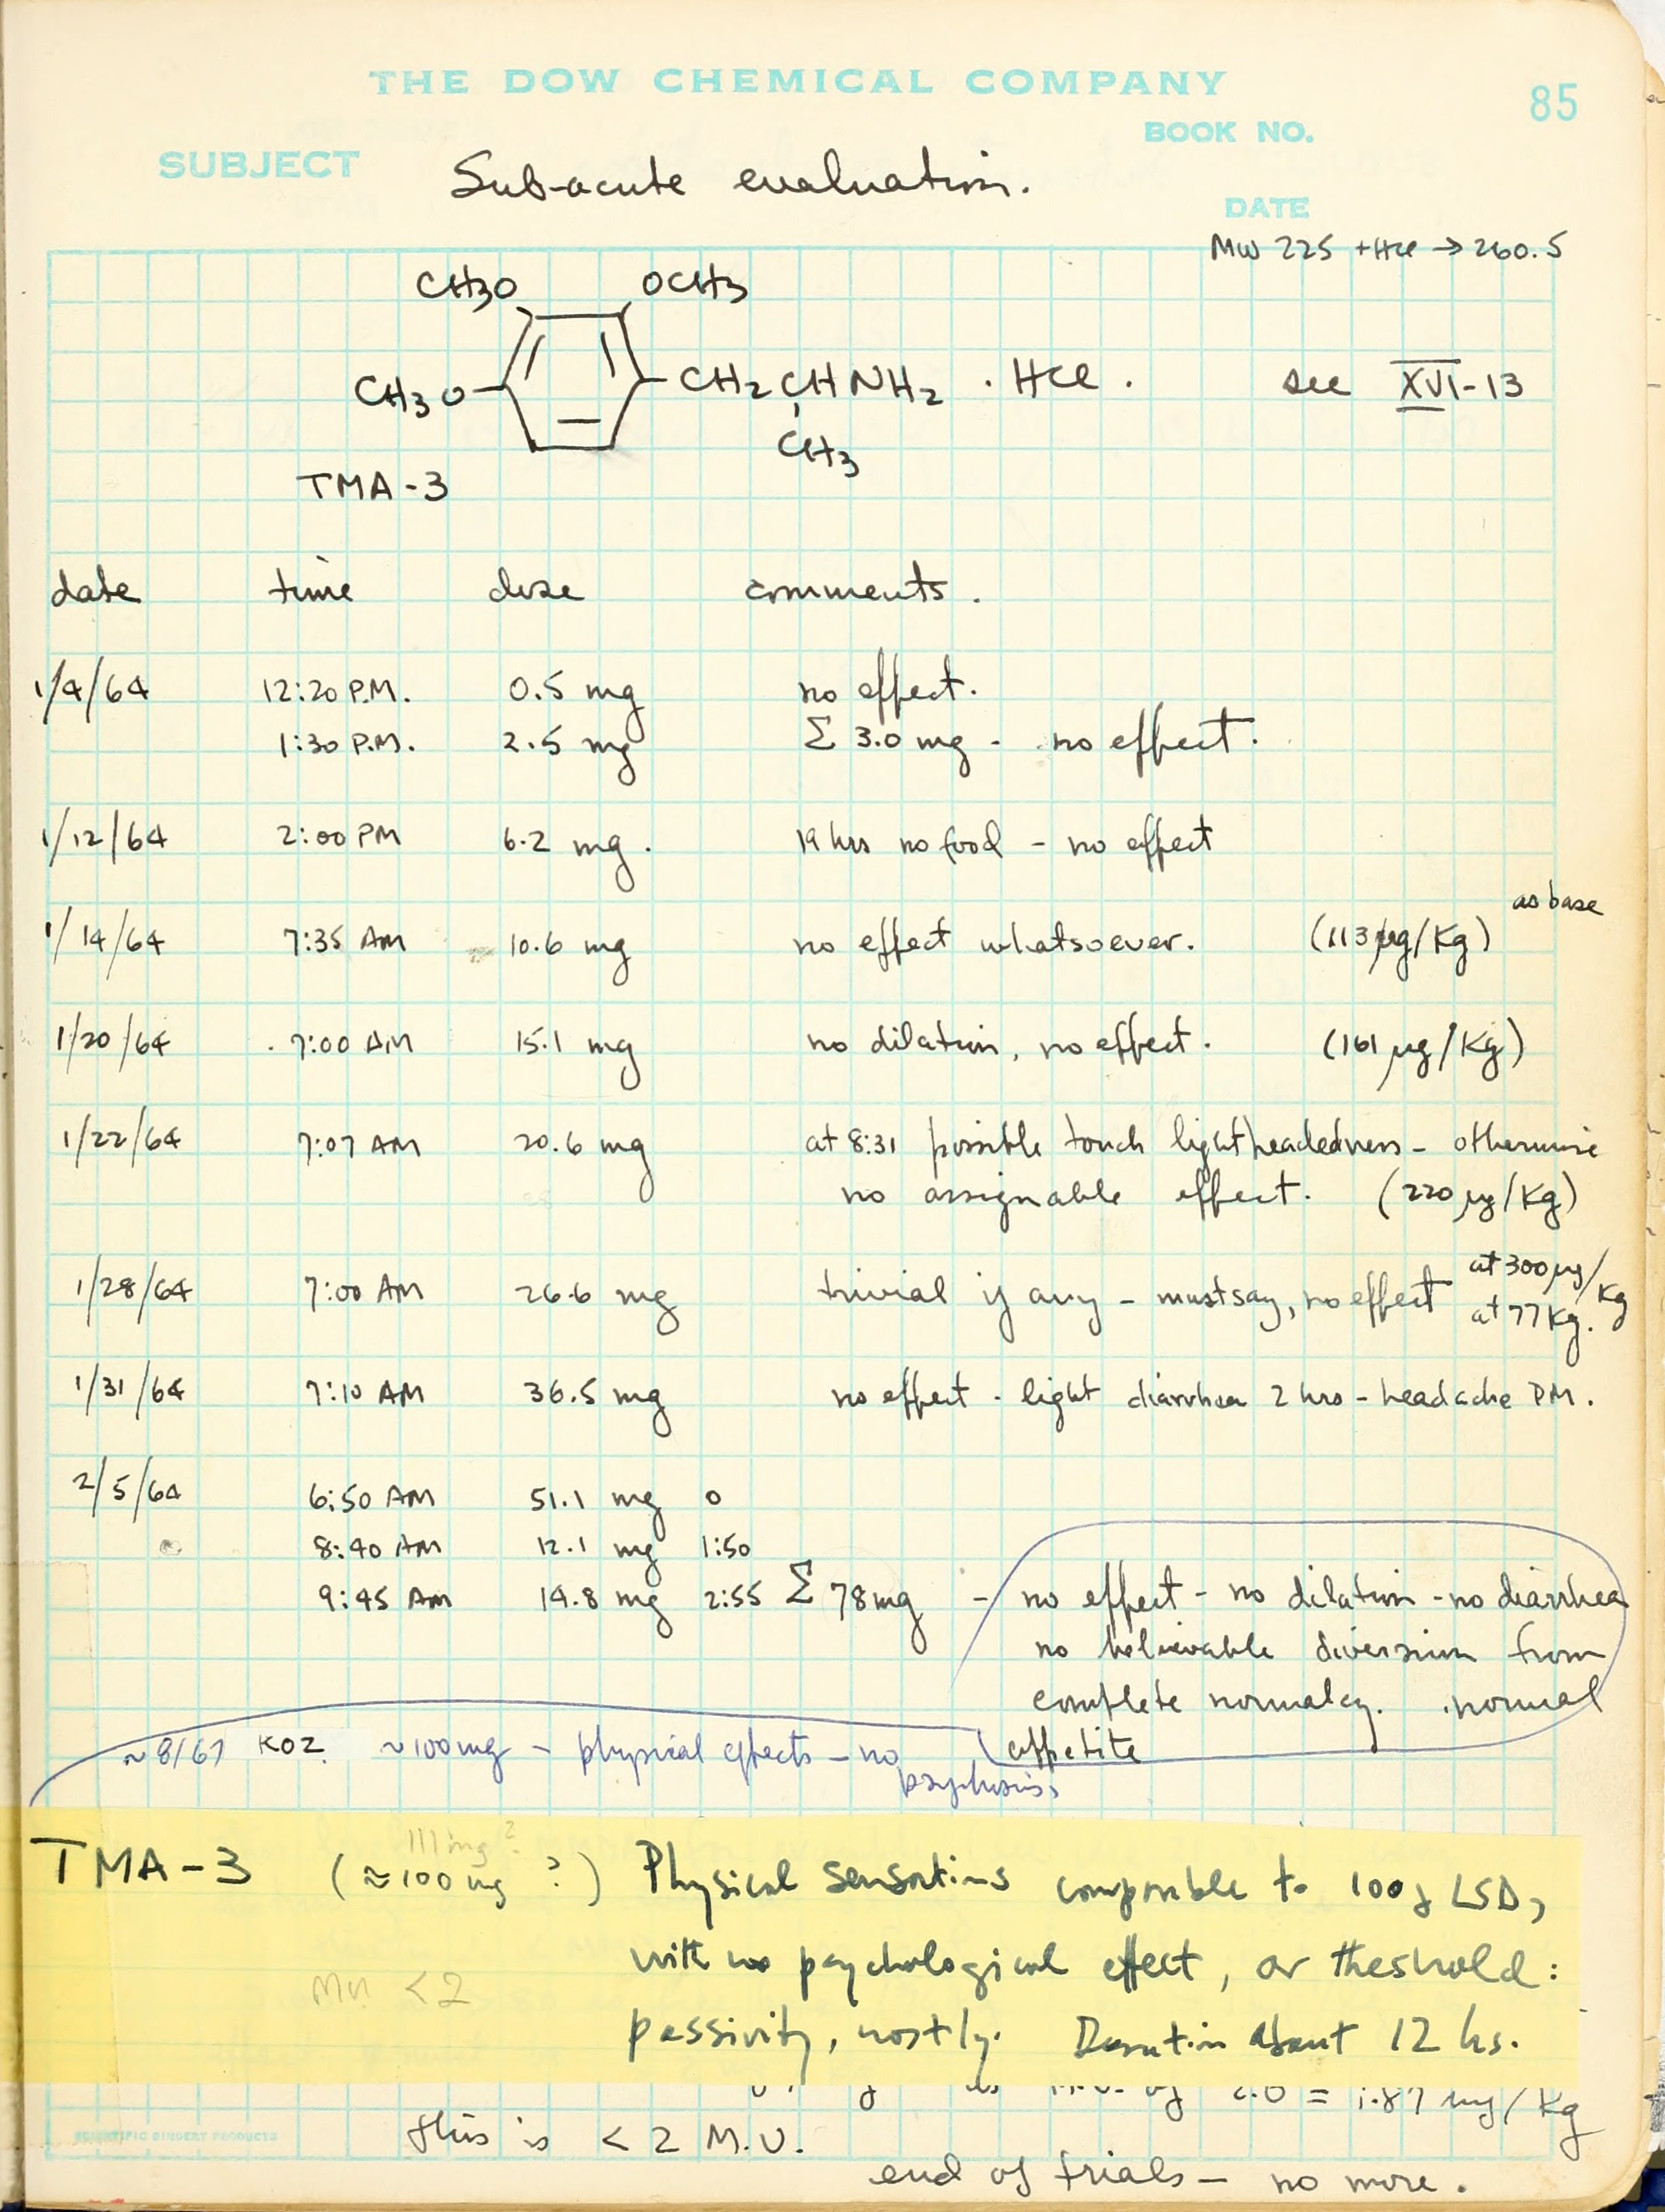 THE DOW CHEMICAL COMPANY
85
BOOK NO.
SUBJECT Sub-acute evaluation.
DATE
MW 225 +HCl → 260.5
CH3O OCH3
CH3O CH2CHNH2 · HCl . see XVI-13
CH3
TMA-3
date time dose comments.
1/4/64 12:20 P.M. 0.5 mg no effect.
1:30 P.M. 2.5 mg Σ 3.0 mg - no effect.
1/12/64 2:00 PM 6.2 mg. 19 hrs no food - no effect
as base
1/14/64 7:35 AM 10.6 mg no effect whatsoever. (113 µg/Kg)
1/20/64 7:00 AM 15.1 mg no dilation, no effect. (161 µg/Kg)
1/22/64 7:07 AM 20.6 mg at 8:31 possible touch lightheadedness - otherwise
no assignable effect. (220 µg/Kg)
1/28/64 7:00 AM 26.6 mg trivial if any - must say, no effect at 300 µg/Kg
at 77 Kg.
1/31/64 7:10 AM 36.5 mg no effect - light diarrhea 2 hrs - headache PM.
2/5/64 6:50 AM 51.1 mg 0
8:40 AM 12.1 mg 1:50
9:45 AM 14.8 mg 2:55 Σ 78mg - no effect - no dilation - no diarrhea
no believable diversion from
complete normalcy. normal
appetite
~8/67 KOZ ~100mg - physical effects - no
psychosis.
111 mg?
TMA-3 (≈100 mg ?) Physical sensations comparible to 100γ LSD,
with no psychological effect, or theshold:
MU <2
passivity, mostly. Duration about 12 hs.
M.U. of 2.0 = 1.87 mg/Kg
this is < 2 M.U.
SCIENTIFIC BINDERY PRODUCTS
end of trials - no more.